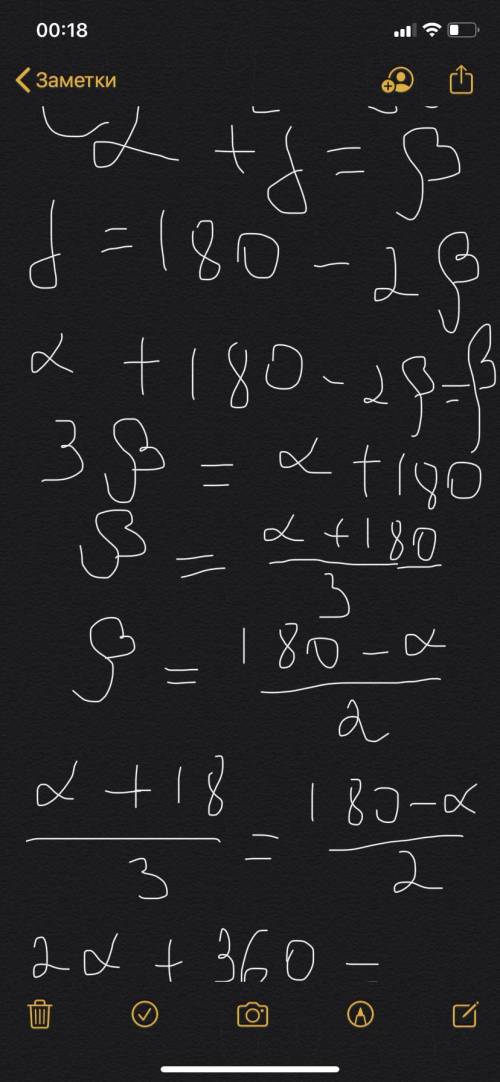 00:18
Заметки
α + γ = β
γ = 180 - 2β
α + 180 - 2β = β
3β = α + 180
β = (α + 180)/3
β = (180 - α)/2
(α + 18)/3 = (180 - α)/2
2α + 360 =